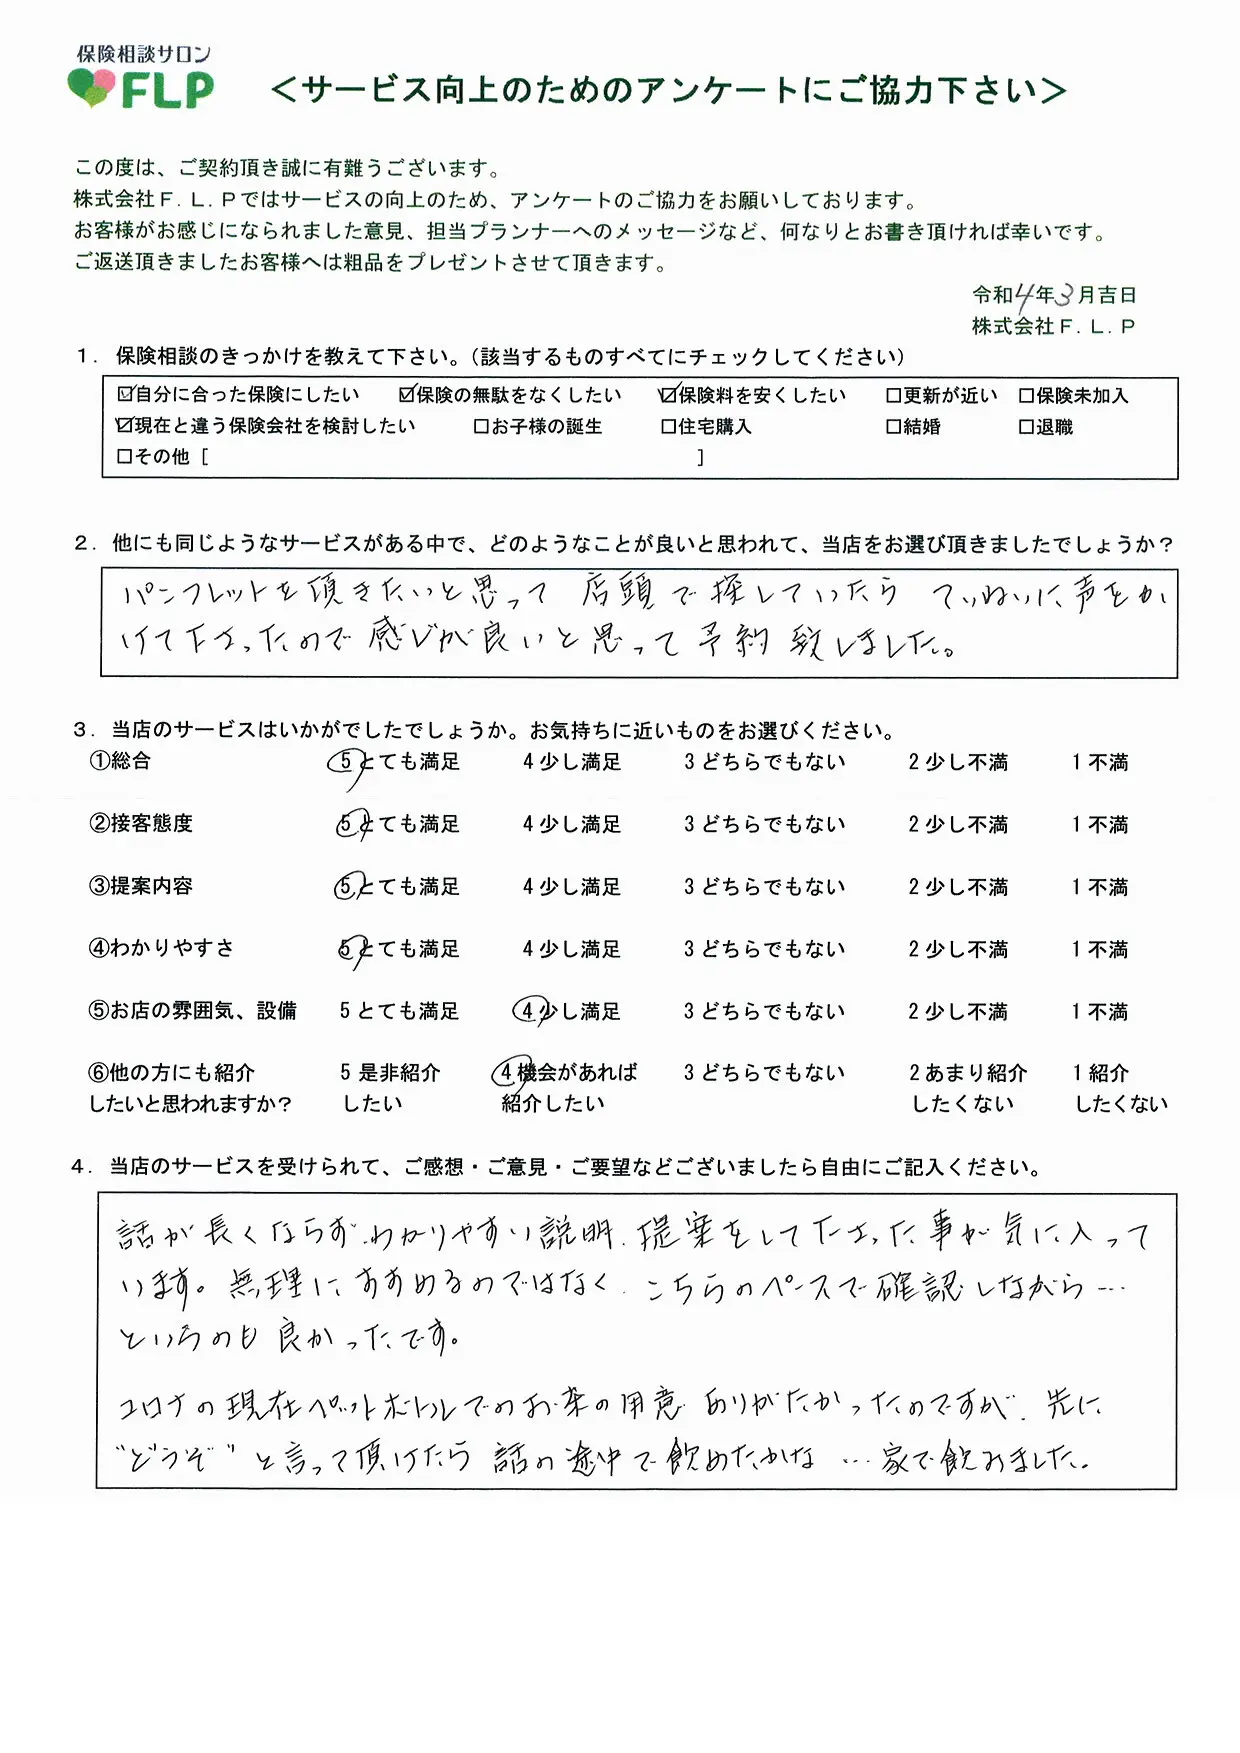 保険相談サロン
FLP
＜サービス向上のためのアンケートにご協力下さい＞
この度は、ご契約頂き誠に有難うございます。
株式会社Ｆ．Ｌ．Ｐではサービスの向上のため、アンケートのご協力をお願いしております。
お客様がお感じになられました意見、担当プランナーへのメッセージなど、何なりとお書き頂ければ幸いです。
ご返送頂きましたお客様へは粗品をプレゼントさせて頂きます。
令和4年3月吉日
株式会社Ｆ．Ｌ．Ｐ
１．保険相談のきっかけを教えて下さい。（該当するものすべてにチェックしてください）
☑自分に合った保険にしたい ☑保険の無駄をなくしたい ☑保険料を安くしたい □更新が近い □保険未加入
☑現在と違う保険会社を検討したい □お子様の誕生 □住宅購入 □結婚 □退職
□その他［ ］
２．他にも同じようなサービスがある中で、どのようなことが良いと思われて、当店をお選び頂きましたでしょうか？
パンフレットを頂きたいと思って 店頭で探していたら ていねいに声をか
けて下さったので感じが良いと思って予約致しました。
３．当店のサービスはいかがでしたでしょうか。お気持ちに近いものをお選びください。
①総合 5 とても満足 4 少し満足 3 どちらでもない 2 少し不満 1 不満
②接客態度 5 とても満足 4 少し満足 3 どちらでもない 2 少し不満 1 不満
③提案内容 5 とても満足 4 少し満足 3 どちらでもない 2 少し不満 1 不満
④わかりやすさ 5 とても満足 4 少し満足 3 どちらでもない 2 少し不満 1 不満
⑤お店の雰囲気、設備 5 とても満足 4 少し満足 3 どちらでもない 2 少し不満 1 不満
⑥他の方にも紹介 5 是非紹介 4 機会があれば 3 どちらでもない 2 あまり紹介 1 紹介
したいと思われますか？ したい 紹介したい したくない したくない
４．当店のサービスを受けられて、ご感想・ご意見・ご要望などございましたら自由にご記入ください。
話が長くならず、わかりやすい説明、提案をして下さった事が気に入って
います。無理にすすめるのではなく、こちらのペースで確認しながら…
というのも良かったです。
コロナの現在ペットボトルでのお茶の用意ありがたかったのですが、先に
“どうぞ”と言って頂けたら話の途中で飲めたかな…家で飲みました。